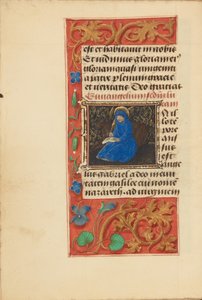 est et habitauit in nobis
Et vidimus gloriam eius
gloriam quasi vnigeniti
a patre plenum gracie
et veritatis Deo gracias
Sequangelium secundum lu
cam
In il
lo te
po re
mis
sus
est
ange
lus gabriel a deo in ciui
tatem galilee cui nomen
nazareth ad virginem